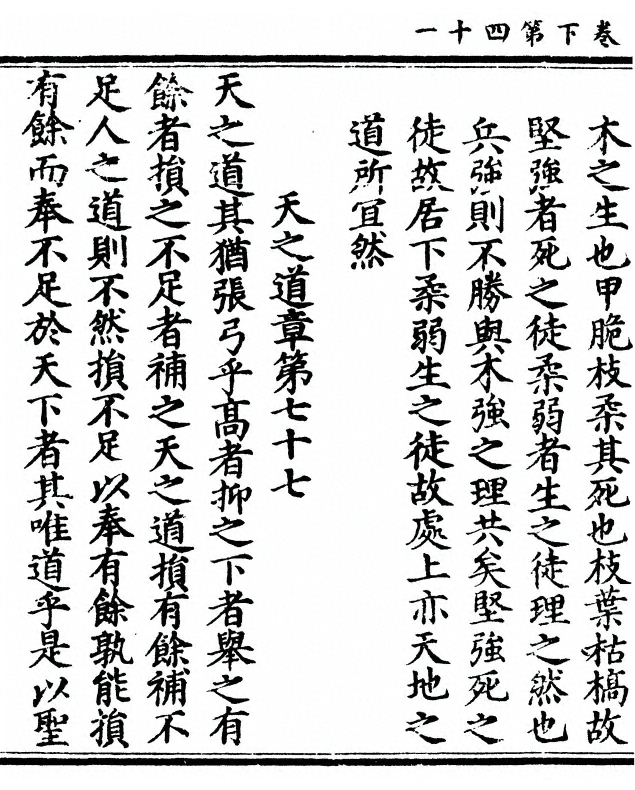 卷下第四十一
木之生也甲脆枝柔其死也枝葉枯槁故
堅強者死之徒柔弱者生之徒理之然也
兵強則不勝與木強之理共矣堅強死之
徒故居下柔弱生之徒故處上亦天地之
道所宜然
天之道章第七十七
天之道其猶張弓乎高者抑之下者舉之有
餘者損之不足者補之天之道損有餘補不
足人之道則不然損不足以奉有餘孰能損
有餘而奉不足於天下者其唯道乎是以聖